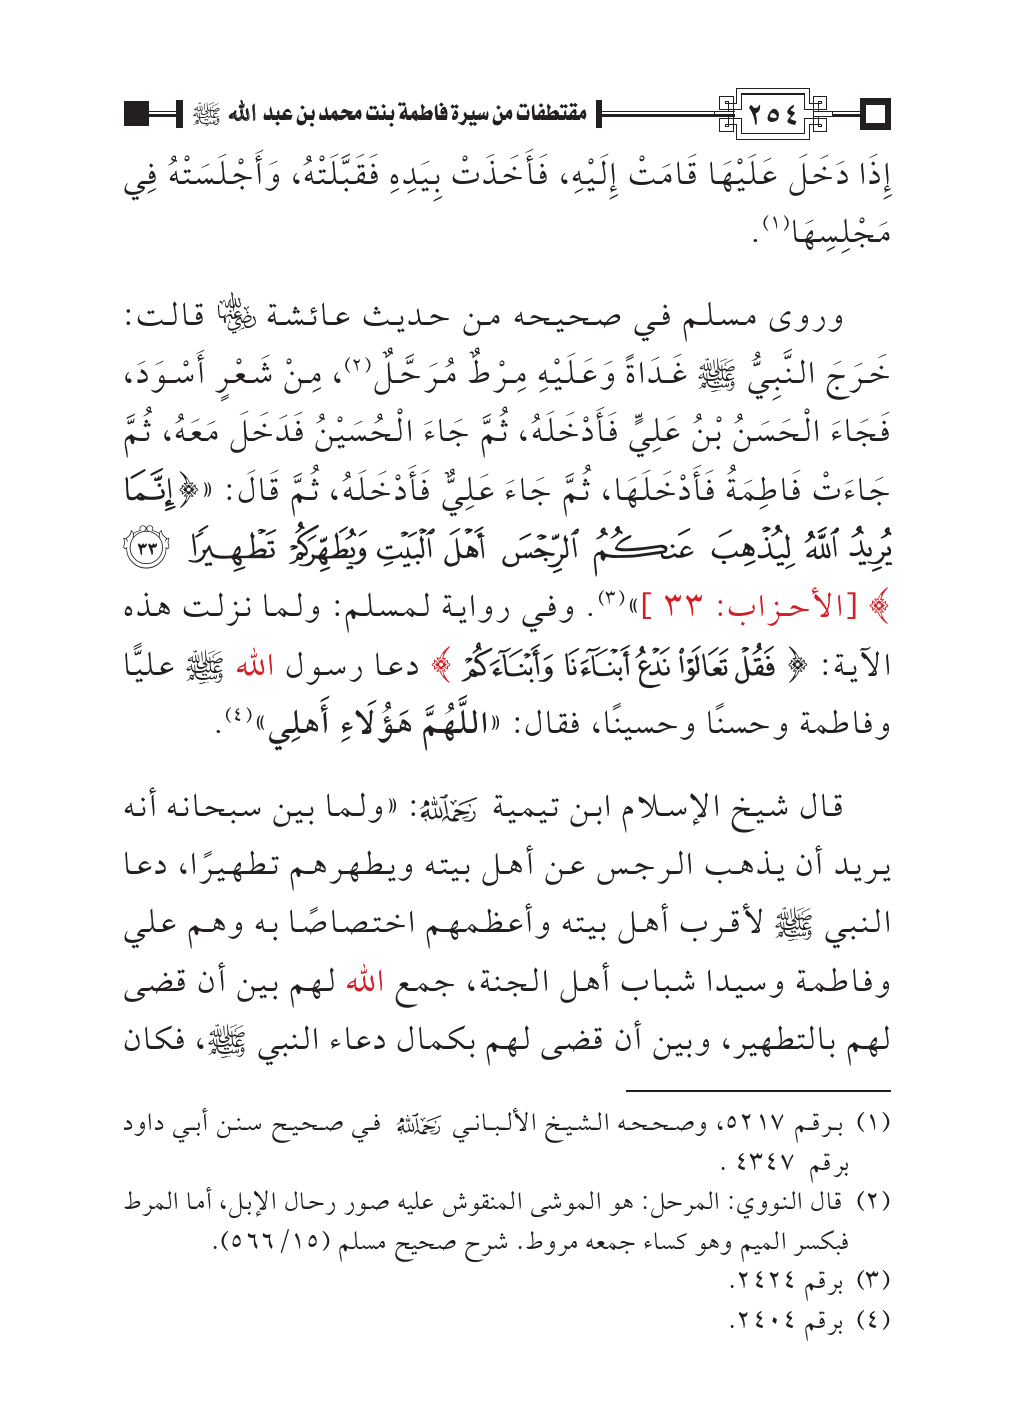 ٢٥٤ مقتطفات من سيرة فاطمة بنت محمد بن عبد الله ﷺ
إِذَا دَخَلَ عَلَيْهَا قَامَتْ إِلَيْهِ، فَأَخَذَتْ بِيَدِهِ فَقَبَّلَتْهُ، وَأَجْلَسَتْهُ فِي
مَجْلِسِهَا(١).
وروى مسلم في صحيحه من حديث عائشة رضي الله عنها قالت:
خَرَجَ النَّبِيُّ ﷺ غَدَاةً وَعَلَيْهِ مِرْطٌ مُرَحَّلٌ(٢)، مِنْ شَعْرٍ أَسْوَدَ،
فَجَاءَ الْحَسَنُ بْنُ عَلِيٍّ فَأَدْخَلَهُ، ثُمَّ جَاءَ الْحُسَيْنُ فَدَخَلَ مَعَهُ، ثُمَّ
جَاءَتْ فَاطِمَةُ فَأَدْخَلَهَا، ثُمَّ جَاءَ عَلِيٌّ فَأَدْخَلَهُ، ثُمَّ قَالَ: «﴿إِنَّمَا
يُرِيدُ ٱللَّهُ لِيُذْهِبَ عَنكُمُ ٱلرِّجْسَ أَهْلَ ٱلْبَيْتِ وَيُطَهِّرَكُمْ تَطْهِيرًا ٣٣
﴾ [الأحزاب: ٣٣ ]»(٣). وفي رواية لمسلم: ولما نزلت هذه
الآية: ﴿ فَقُلْ تَعَالَوْا۟ نَدْعُ أَبْنَآءَنَا وَأَبْنَآءَكُمْ ﴾ دعا رسول الله ﷺ عليًّا
وفاطمة وحسنًا وحسينًا، فقال: «اللَّهُمَّ هَؤُلَاءِ أَهلِي»(٤).
قال شيخ الإسلام ابن تيمية رحمه الله: «ولما بين سبحانه أنه
يريد أن يذهب الرجس عن أهل بيته ويطهرهم تطهيرًا، دعا
النبي ﷺ لأقرب أهل بيته وأعظمهم اختصاصًا به وهم علي
وفاطمة وسيدا شباب أهل الجنة، جمع الله لهم بين أن قضى
لهم بالتطهير، وبين أن قضى لهم بكمال دعاء النبي ﷺ، فكان
(١) برقم ٥٢١٧، وصححه الشيخ الألباني رحمه الله في صحيح سنن أبي داود
برقم ٤٣٤٧ .
(٢) قال النووي: المرحل: هو الموشى المنقوش عليه صور رحال الإبل، أما المرط
فبكسر الميم وهو كساء جمعه مروط. شرح صحيح مسلم (١٥/ ٥٦٦).
(٣) برقم ٢٤٢٤.
(٤) برقم ٢٤٠٤.